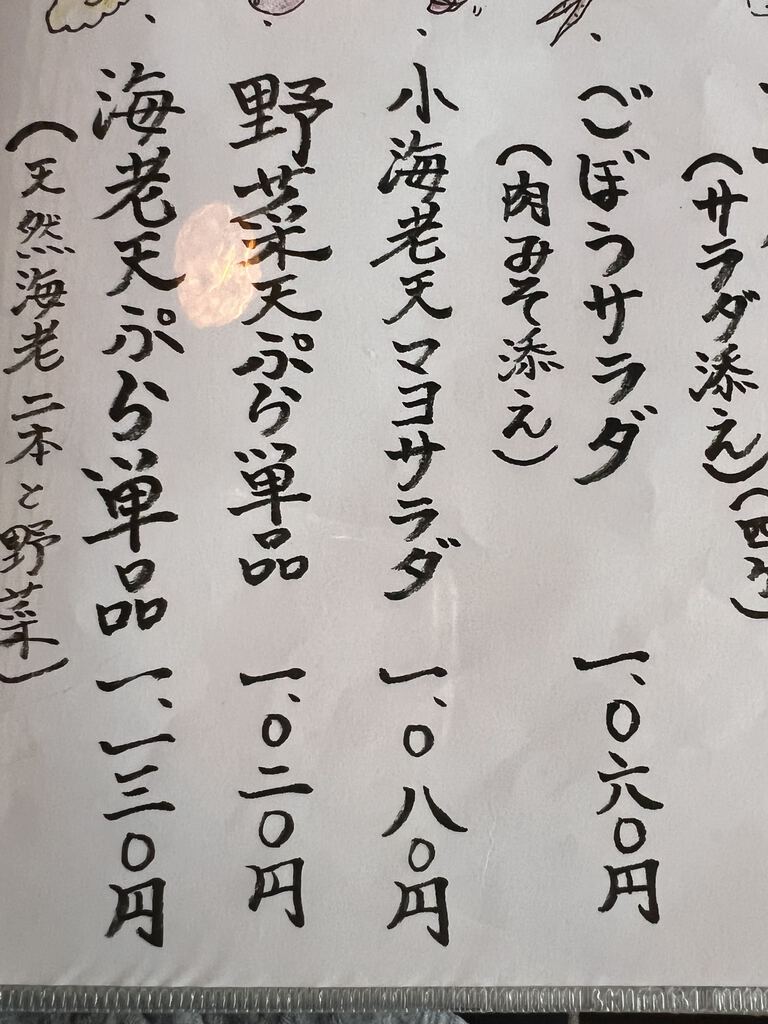 (サラダ添え)(四ケ)
ごぼうサラダ 一、〇六〇円
(肉みそ添え)
小海老天マヨサラダ 一、〇八〇円
野菜天ぷら単品 一、〇二〇円
海老天ぷら単品 一、一三〇円
(天然海老二本と野菜)